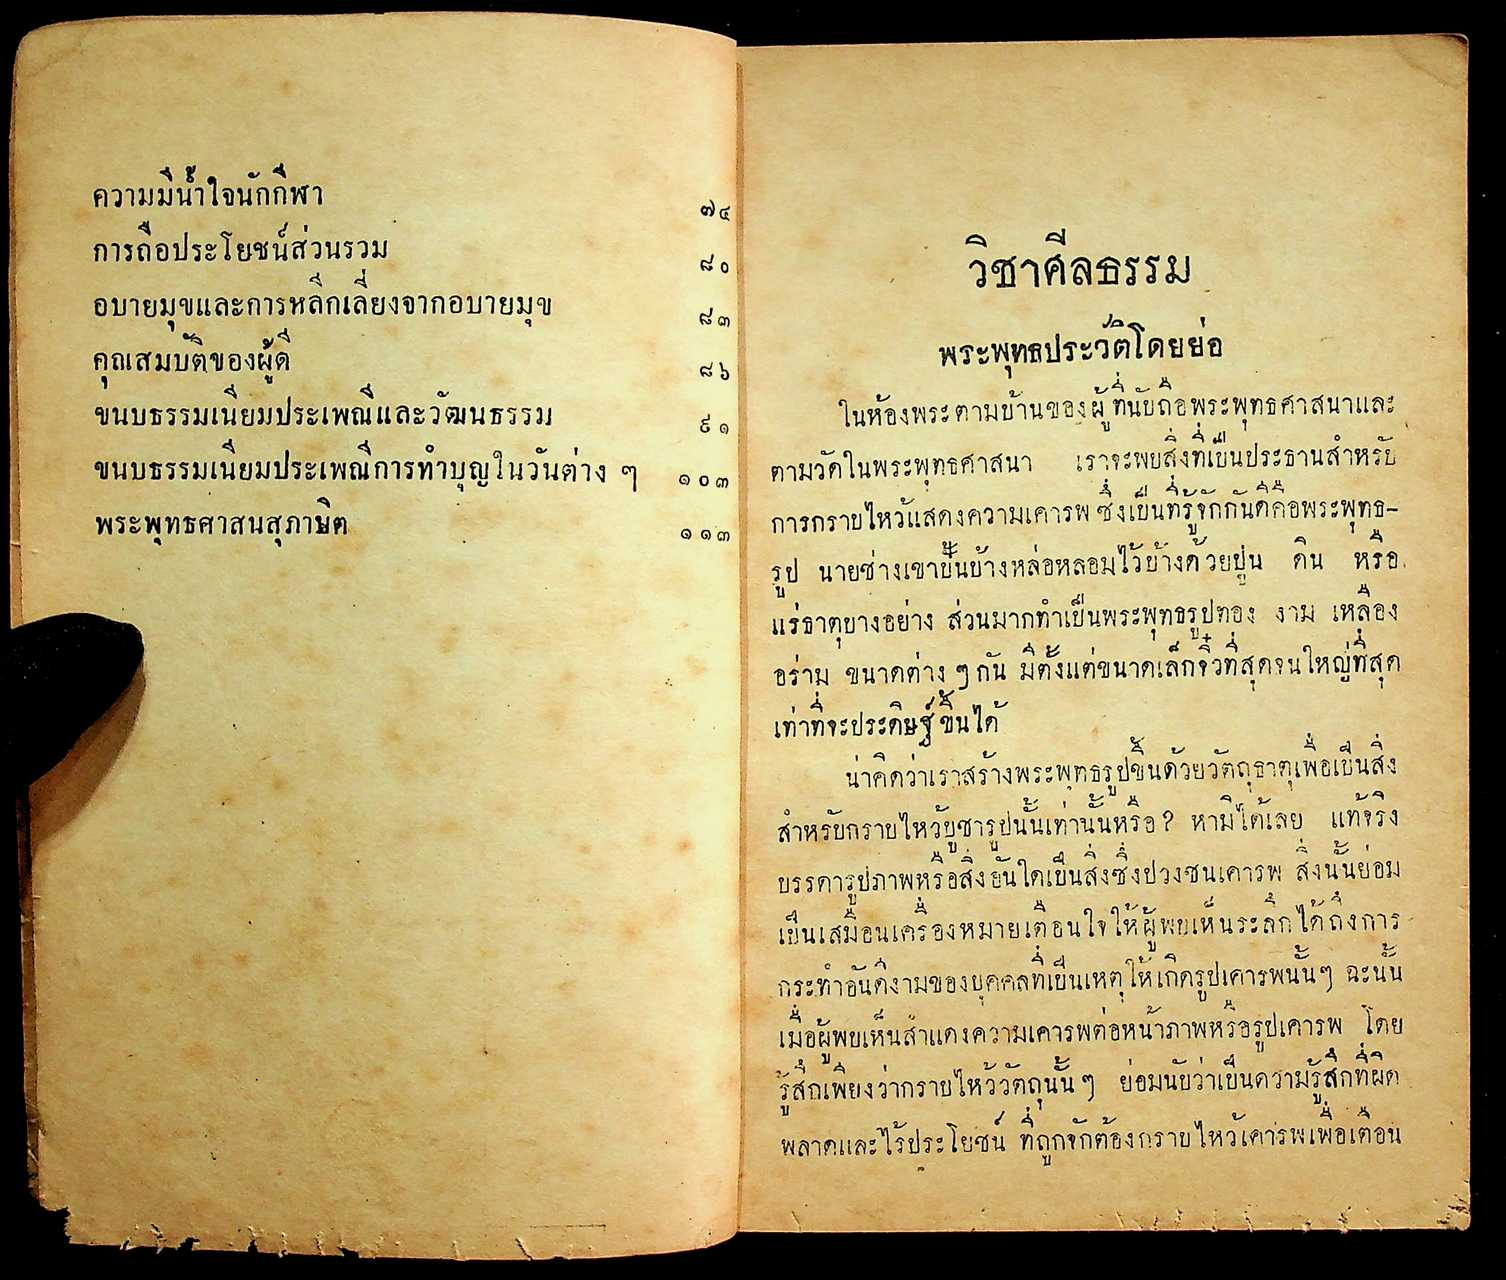 ความมีน้ำใจนักกีฬา ๗๔
การถือประโยชน์ส่วนรวม ๘๐
อบายมุขและการหลีกเลี่ยงจากอบายมุข ๘๓
คุณสมบัติของผู้ดี ๘๖
ขนบธรรมเนียมประเพณีและวัฒนธรรม ๙๑
ขนบธรรมเนียมประเพณีการทำบุญในวันต่าง ๆ ๑๐๓
พระพุทธศาสนสุภาษิต ๑๑๓
วิชาศีลธรรม
พระพุทธประวัติโดยย่อ
ในห้องพระตามบ้านของผู้ที่นับถือพระพุทธศาสนาและ
ตามวัดในพระพุทธศาสนา เราจะพบสิ่งที่เป็นประธานสำหรับ
การกราบไหว้แสดงความเคารพ ซึ่งเป็นที่รู้จักกันดีคือพระพุทธ-
รูป นายช่างเขาปั้นบ้างหล่อหลอมไว้บ้างด้วยปูน ดิน หรือ
แร่ธาตุบางอย่าง ส่วนมากทำเป็นพระพุทธรูปทอง งาม เหลือง
อร่าม ขนาดต่าง ๆ กัน มีตั้งแต่ขนาดเล็กจิ๋วที่สุดจนใหญ่ที่สุด
เท่าที่จะประดิษฐ์ขึ้นได้
น่าคิดว่าเราสร้างพระพุทธรูปขึ้นด้วยวัตถุธาตุเพื่อเป็นสิ่ง
สำหรับกราบไหว้บูชารูปนั้นเท่านั้นหรือ? หามิได้เลย แท้จริง
บรรดารูปภาพหรือสิ่งอันใดเป็นสิ่งซึ่งปวงชนเคารพ สิ่งนั้นย่อม
เป็นเสมือนเครื่องหมายเตือนใจให้ผู้พบเห็นระลึกได้ถึงการ
กระทำอันดีงามของบุคคลที่เป็นเหตุให้เกิดรูปเคารพนั้นๆ ฉะนั้น
เมื่อผู้พบเห็นสำแดงความเคารพต่อหน้าภาพหรือรูปเคารพ โดย
รู้สึกเพียงว่ากราบไหว้วัตถุนั้น ๆ ย่อมนับว่าเป็นความรู้สึกที่ผิด
พลาดและไร้ประโยชน์ ที่ถูกจักต้องกราบไหว้เคารพเพื่อเตือน